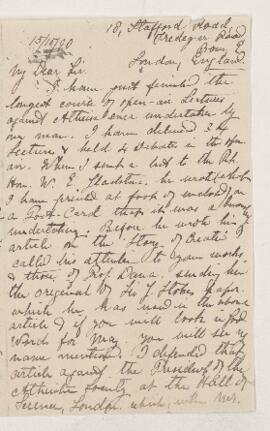 18, Stafford Road,
Tredegar Road
Bow, E
15/10/90
London, England.
My Dear Sir.
I have just finished the
longest course of open-air Lectures
against Atheism ever undertaken by
one man. I have delivered 34
lectures & held 4 Debates in the open
air. When I sent a list to the Rt.
Hon. W. E. Gladstone he wrote (what
I have printed at foot of enclosed) on
a Post-Card that it was a
undertaking. Before he wrote his
article on the "Story of Creation" I
called his attention to your works
& those of Prof Dana. sending him
the original by Sir J. Stokes paper.
which he has used in the above
article & if you will look in Good
Words for May you will see my
name mentioned. I defended that
article against the President of the
Atheistic Society at the Hall of
Science, London. which, when Mr.